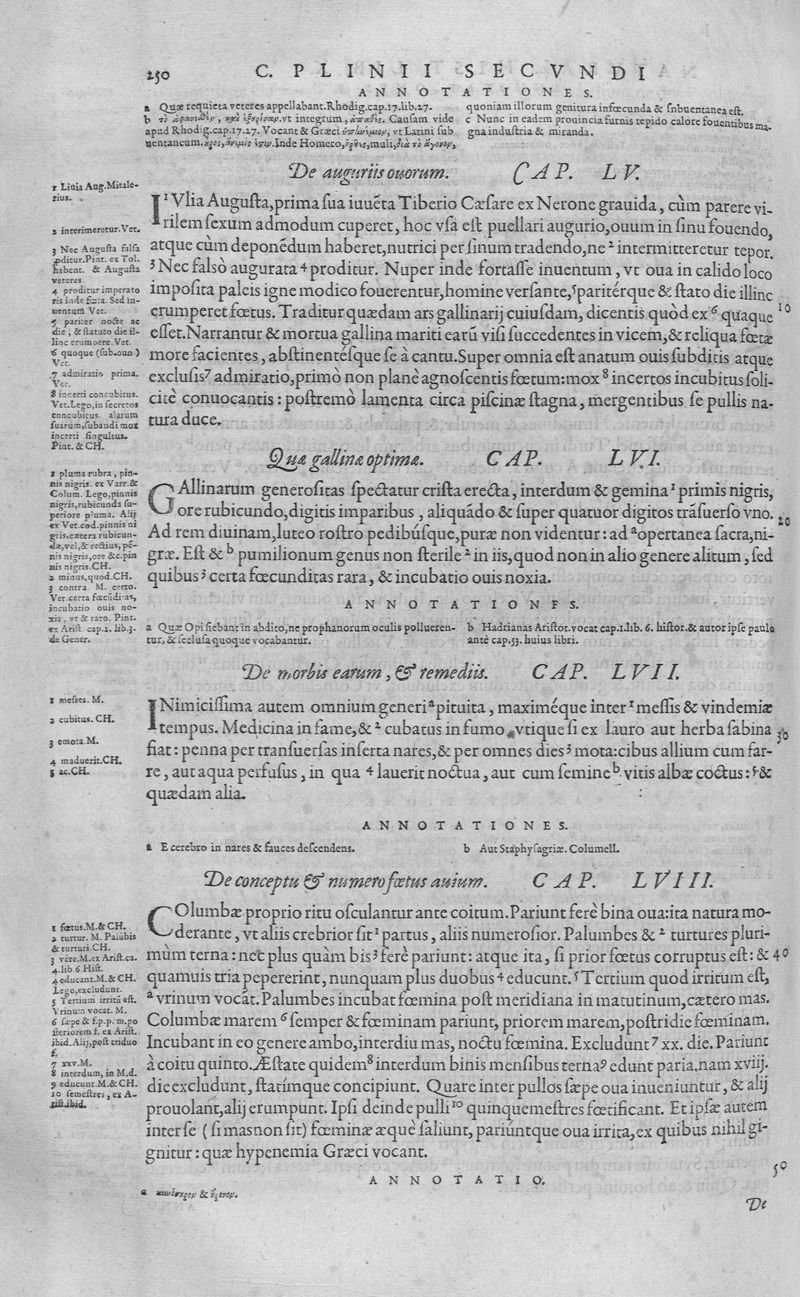 250 C. PLINII SECVNDI
ANNOTATIONES.
a Quæ requieta veteres appellabant. Rhodig. cap. 17. lib. 27.
apud Rhodig. cap. 17. 27. Vocant & Græci vt Latini sub
quoniam illorum genitura infœcunda & snbuentanea est.
c Nunc in eadem prouincia furnis tepido calore fouentibus ma-
gna industria & miranda.
De auguriis ouorum. CAP. LV.
1 Liuia Aug. Mitale-
rius.
2 interimeretur. Vet.
3 Nec Augusta falsa
proditur. Pint. ex Tol.
habent. & Augusta
veteres
4 proditur imperato
ris inde fœta. Sed in-
uentum Vet.
5 pariter nocte ac
die, & statuto die il-
linc erumpere. Vet.
6 quoque (sub. ouo)
Vet.
7 admiratio prima.
Vet.
8 incerti concubitus.
Vet. Lego, in secretos
concubitus. alarum
suarum, subaudi mox
incerti singultus.
Pint. & CH.
I¹Vlia Augusta, prima sua iuuēta Tiberio Cæsare ex Nerone grauida, cùm parere vi-
rilem sexum admodum cuperet, hoc vsa est puellari augurio, ouum in sinu fouendo,
atque cùm deponēdum haberet, nutrici per sinum tradendo, ne ² intermitteretur tepor.
³ Nec falsò augurata ⁴ proditur. Nuper inde fortasse inuentum, vt oua in calido loco
imposita paleis igne modico fouerentur, homine versante, ⁵ paritérque & stato die illinc
erumperet fœtus. Traditur quædam ars gallinarij cuiusdam, dicentis quòd ex ⁶ quaque 10
esset. Narrantur & mortua gallina mariti earū visi succedentes in vicem, & reliqua fœtæ
more facientes, abstinentésque se à cantu. Super omnia est anatum ouis subditis atque
exclusis ⁷ admiratio, primò non planè agnoscentis fœtum: mox ⁸ incertos incubitus soli-
citè conuocantis: postremò lamenta circa piscinæ stagna, mergentibus se pullis na-
tura duce.
Quæ gallinæ optimæ. CAP. LVI.
1 pluma rubra, pin-
nis nigris. ex Varr. &
Colum. Lego, pinnis
nigris, rubicunda su-
periore pluma. Alij
ex Vet. cod. pinnis ni
gris, cætera rubicun-
dæ, vel, & rectius, pē-
nis nigris, ore &c. pin
nis nigris. CH.
2 minus, quod. CH.
3 contra. M. certo.
Vet. certa fœcūditas,
incubatio ouis no-
xia, vt & raro. Pint.
ex Arist. cap. 2. lib. 3.
de Gener.
GAllinarum generositas spectatur crista erecta, interdum & gemina ¹ primis nigris,
ore rubicundo, digitis imparibus, aliquādo & super quatuor digitos trāsuerso vno. 20
Ad rem diuinam, luteo rostro pedibúsque, puræ non videntur: ad ᵃ opertanea sacra, ni-
græ. Est & ᵇ pumilionum genus non sterile ² in iis, quod non in alio genere alitum, sed
quibus ³ certa fœcunditas rara, & incubatio ouis noxia.
ANNOTATIONES.
a Quæ Opi fiebant in abdito, ne prophanorum oculis polluerен-
tur, & seclusa quoque vocabantur.
b Hadrianas Aristot. vocat cap. 1. lib. 6. histor. & autor ipse paulo
antè cap. 53. huius libri.
De morbis earum, & remediis. CAP. LVII.
1 messes. M.
2 cubitus. CH.
3 emota. M.
4 maduerit. CH.
5 ac. CH.
INimicissima autem omnium generi ᵃ pituita, maximéque inter ¹ messis & vindemiæ
tempus. Medicina in fame, & ² cubatus in fumo, vtique si ex lauro aut herba sabina 30
fiat: penna per transuersas inserta nares, & per omnes dies ³ mota: cibus allium cum far-
re, aut aqua perfusus, in qua ⁴ lauerit noctua, aut cum semine ᵇ vitis albæ coctus: ⁵ &
quædam alia.
ANNOTATIONES.
a E cerebro in nares & fauces descendens.
b Aut Staphysagriæ. Columell.
De conceptu & numero fœtus auium. CAP. LVIII.
1 fœtus. M. & CH.
2 turtur. M. Palūbis
& turturi. CH.
3 vere. M. ex Arist. ca.
4. lib 6. Hist.
4 educant. M. & CH.
Lego, excludunt.
5 Tertium irritū est.
Vrinum vocat. M.
6 sæpe & f. p. p. m. po
steriorem f. ex Arist.
ibid. Alij, post triduo
f.
7 xxv. M.
8 interdum, in M. d.
9 educunt. M. & CH.
10 semestres, ex A-
rist. ibid.
COlumbæ proprio ritu osculantur ante coitum. Pariunt ferè bina oua: ita natura mo-
derante, vt aliis crebrior sit ¹ partus, aliis numerosior. Palumbes & ² turtures pluri-
mùm terna: nec plus quàm bis ³ ferè pariunt: atque ita, si prior fœtus corruptus est: & 40
quamuis tria pepererint, nunquam plus duobus ⁴ educunt. ⁵ Tertium quod irritum est,
ᵃ vrinum vocāt. Palumbes incubat fœmina post meridiana in matutinum, cætero mas.
Columbæ marem ⁶ semper & fœminam pariunt, priorem marem, postridie fœminam.
Incubant in eo genere ambo, interdiu mas, noctu fœmina. Excludunt ⁷ xx. die. Pariunt
à coitu quinto. Æstate quidem ⁸ interdum binis mensibus terna ⁹ edunt paria. nam xviij.
die excludunt, statímque concipiunt. Quare inter pullos sæpe oua inueniuntur, & alij
prouolant, alij erumpunt. Ipsi deinde pulli ¹⁰ quinquemestres fœtificant. Et ipsæ autem
inter se (si mas non sit) fœminæ æquè saliunt, pariúntque oua irrita, ex quibus nihil gi-
gnitur: quæ hypenemia Græci vocant.
50
ANNOTATIO.
De